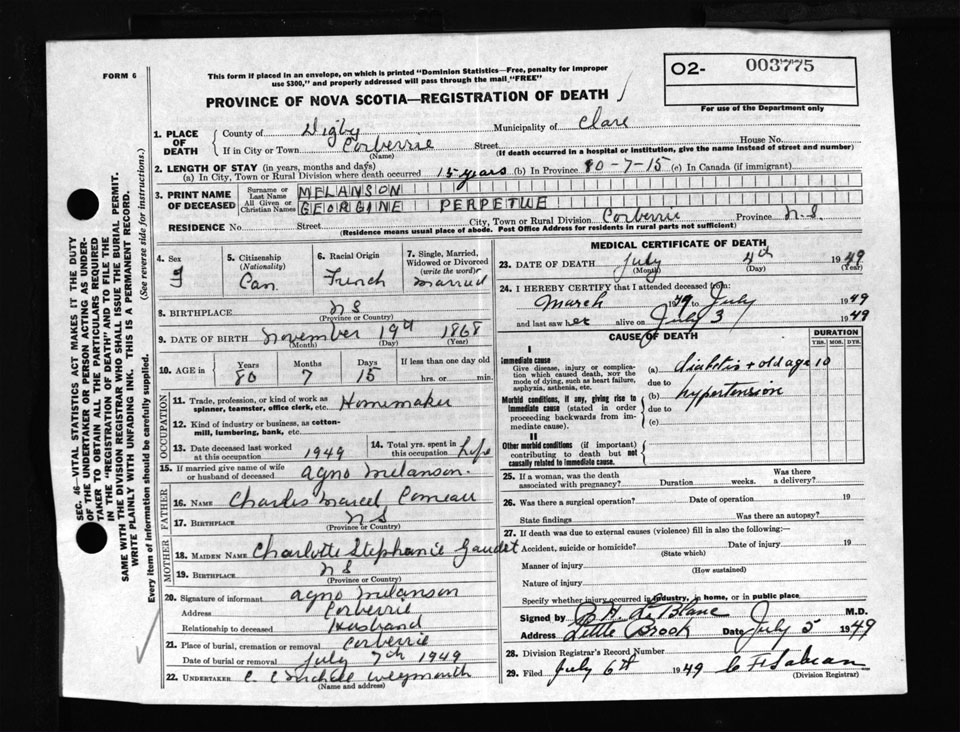 FORM 6
This form if placed in an envelope, on which is printed "Dominion Statistics—Free, penalty for improper
use $300," and properly addressed will pass through the mail "FREE"
PROVINCE OF NOVA SCOTIA—REGISTRATION OF DEATH
O2- 003775
For use of the Department only
1. PLACE OF DEATH
County of Digby Municipality of Clare
If in City or Town Corberrie Street House No.
(Name) (If death occurred in a hospital or institution, give the name instead of street and number)
2. LENGTH OF STAY (in years, months and days)
(a) In City, Town or Rural Division where death occurred 15 years (b) In Province 80-7-15 (c) In Canada (if immigrant)
3. PRINT NAME OF DECEASED
Surname or Last Name MELANSON
All Given or Christian Names GEORGINE PERPETUE
RESIDENCE No. Street City, Town or Rural Division Corberrie Province N.S.
(Residence means usual place of abode. Post Office Address for residents in rural parts not sufficient)
4. Sex 5. Citizenship (Nationality) Can. 6. Racial Origin French 7. Single, Married, Widowed or Divorced (write the word) Married
8. BIRTHPLACE N S
(Province or Country)
9. DATE OF BIRTH November 19th 1868
(Month) (Day) (Year)
10. AGE in Years 80 Months 7 Days 15 If less than one day old hrs. or min.
OCCUPATION
11. Trade, profession, or kind of work as spinner, teamster, office clerk, etc. Homemaker
12. Kind of industry or business, as cotton-mill, lumbering, bank, etc.
13. Date deceased last worked at this occupation 1949 14. Total yrs. spent in this occupation Life
15. If married give name of wife or husband of deceased Agno Melanson.
FATHER
16. NAME Charles Marcel Comeau
17. BIRTHPLACE N S
(Province or Country)
MOTHER
18. MAIDEN NAME Charlotte Stephanie Gaudet
19. BIRTHPLACE N S
(Province or Country)
20. Signature of informant Agno Melanson
Address Corberrie
Relationship to deceased Husband
21. Place of burial, cremation or removal Corberrie
Date of burial or removal July 7th 1949
22. UNDERTAKER Weymouth
(Name and address)
MEDICAL CERTIFICATE OF DEATH
23. DATE OF DEATH July 4th 1949
(Month) (Day) (Year)
24. I HEREBY CERTIFY that I attended deceased from:
March 1949 to July 1949
and last saw her alive on July 3 1949
CAUSE OF DEATH DURATION
YRS. MOS. DYS.
I
Immediate cause
Give disease, injury or complication which caused death, not the mode of dying, such as heart failure, asphyxia, asthenia, etc.
(a) diabetis + old age 10
due to
Morbid conditions, if any, giving rise to immediate cause (stated in order proceeding backwards from immediate cause).
(b) hypertension
due to
(c)
II
Other morbid conditions (if important) contributing to death but not causally related to immediate cause.
25. If a woman, was the death associated with pregnancy? Duration weeks. Was there a delivery?
26. Was there a surgical operation? Date of operation 19
State findings Was there an autopsy?
27. If death was due to external causes (violence) fill in also the following:—
Accident, suicide or homicide? Date of injury 19
(State which)
Manner of injury
(How sustained)
Nature of injury
Specify whether injury occurred in industry, in home, or in public place
Signed by LeBlanc M.D.
Address Little Brook Date July 5 1949
28. Division Registrar's Record Number
29. Filed July 6th 1949
(Division Registrar)
SEC. 46—VITAL STATISTICS ACT MAKES IT THE DUTY
OF THE UNDERTAKER OR PERSON ACTING AS UNDER-
TAKER TO OBTAIN ALL THE PARTICULARS REQUIRED
IN THE "REGISTRATION OF DEATH" AND TO FILE THE
SAME WITH THE DIVISION REGISTRAR WHO SHALL ISSUE THE BURIAL PERMIT.
WRITE PLAINLY WITH UNFADING INK. THIS IS A PERMANENT RECORD.
Every item of information should be carefully supplied. (See reverse side for instructions.)